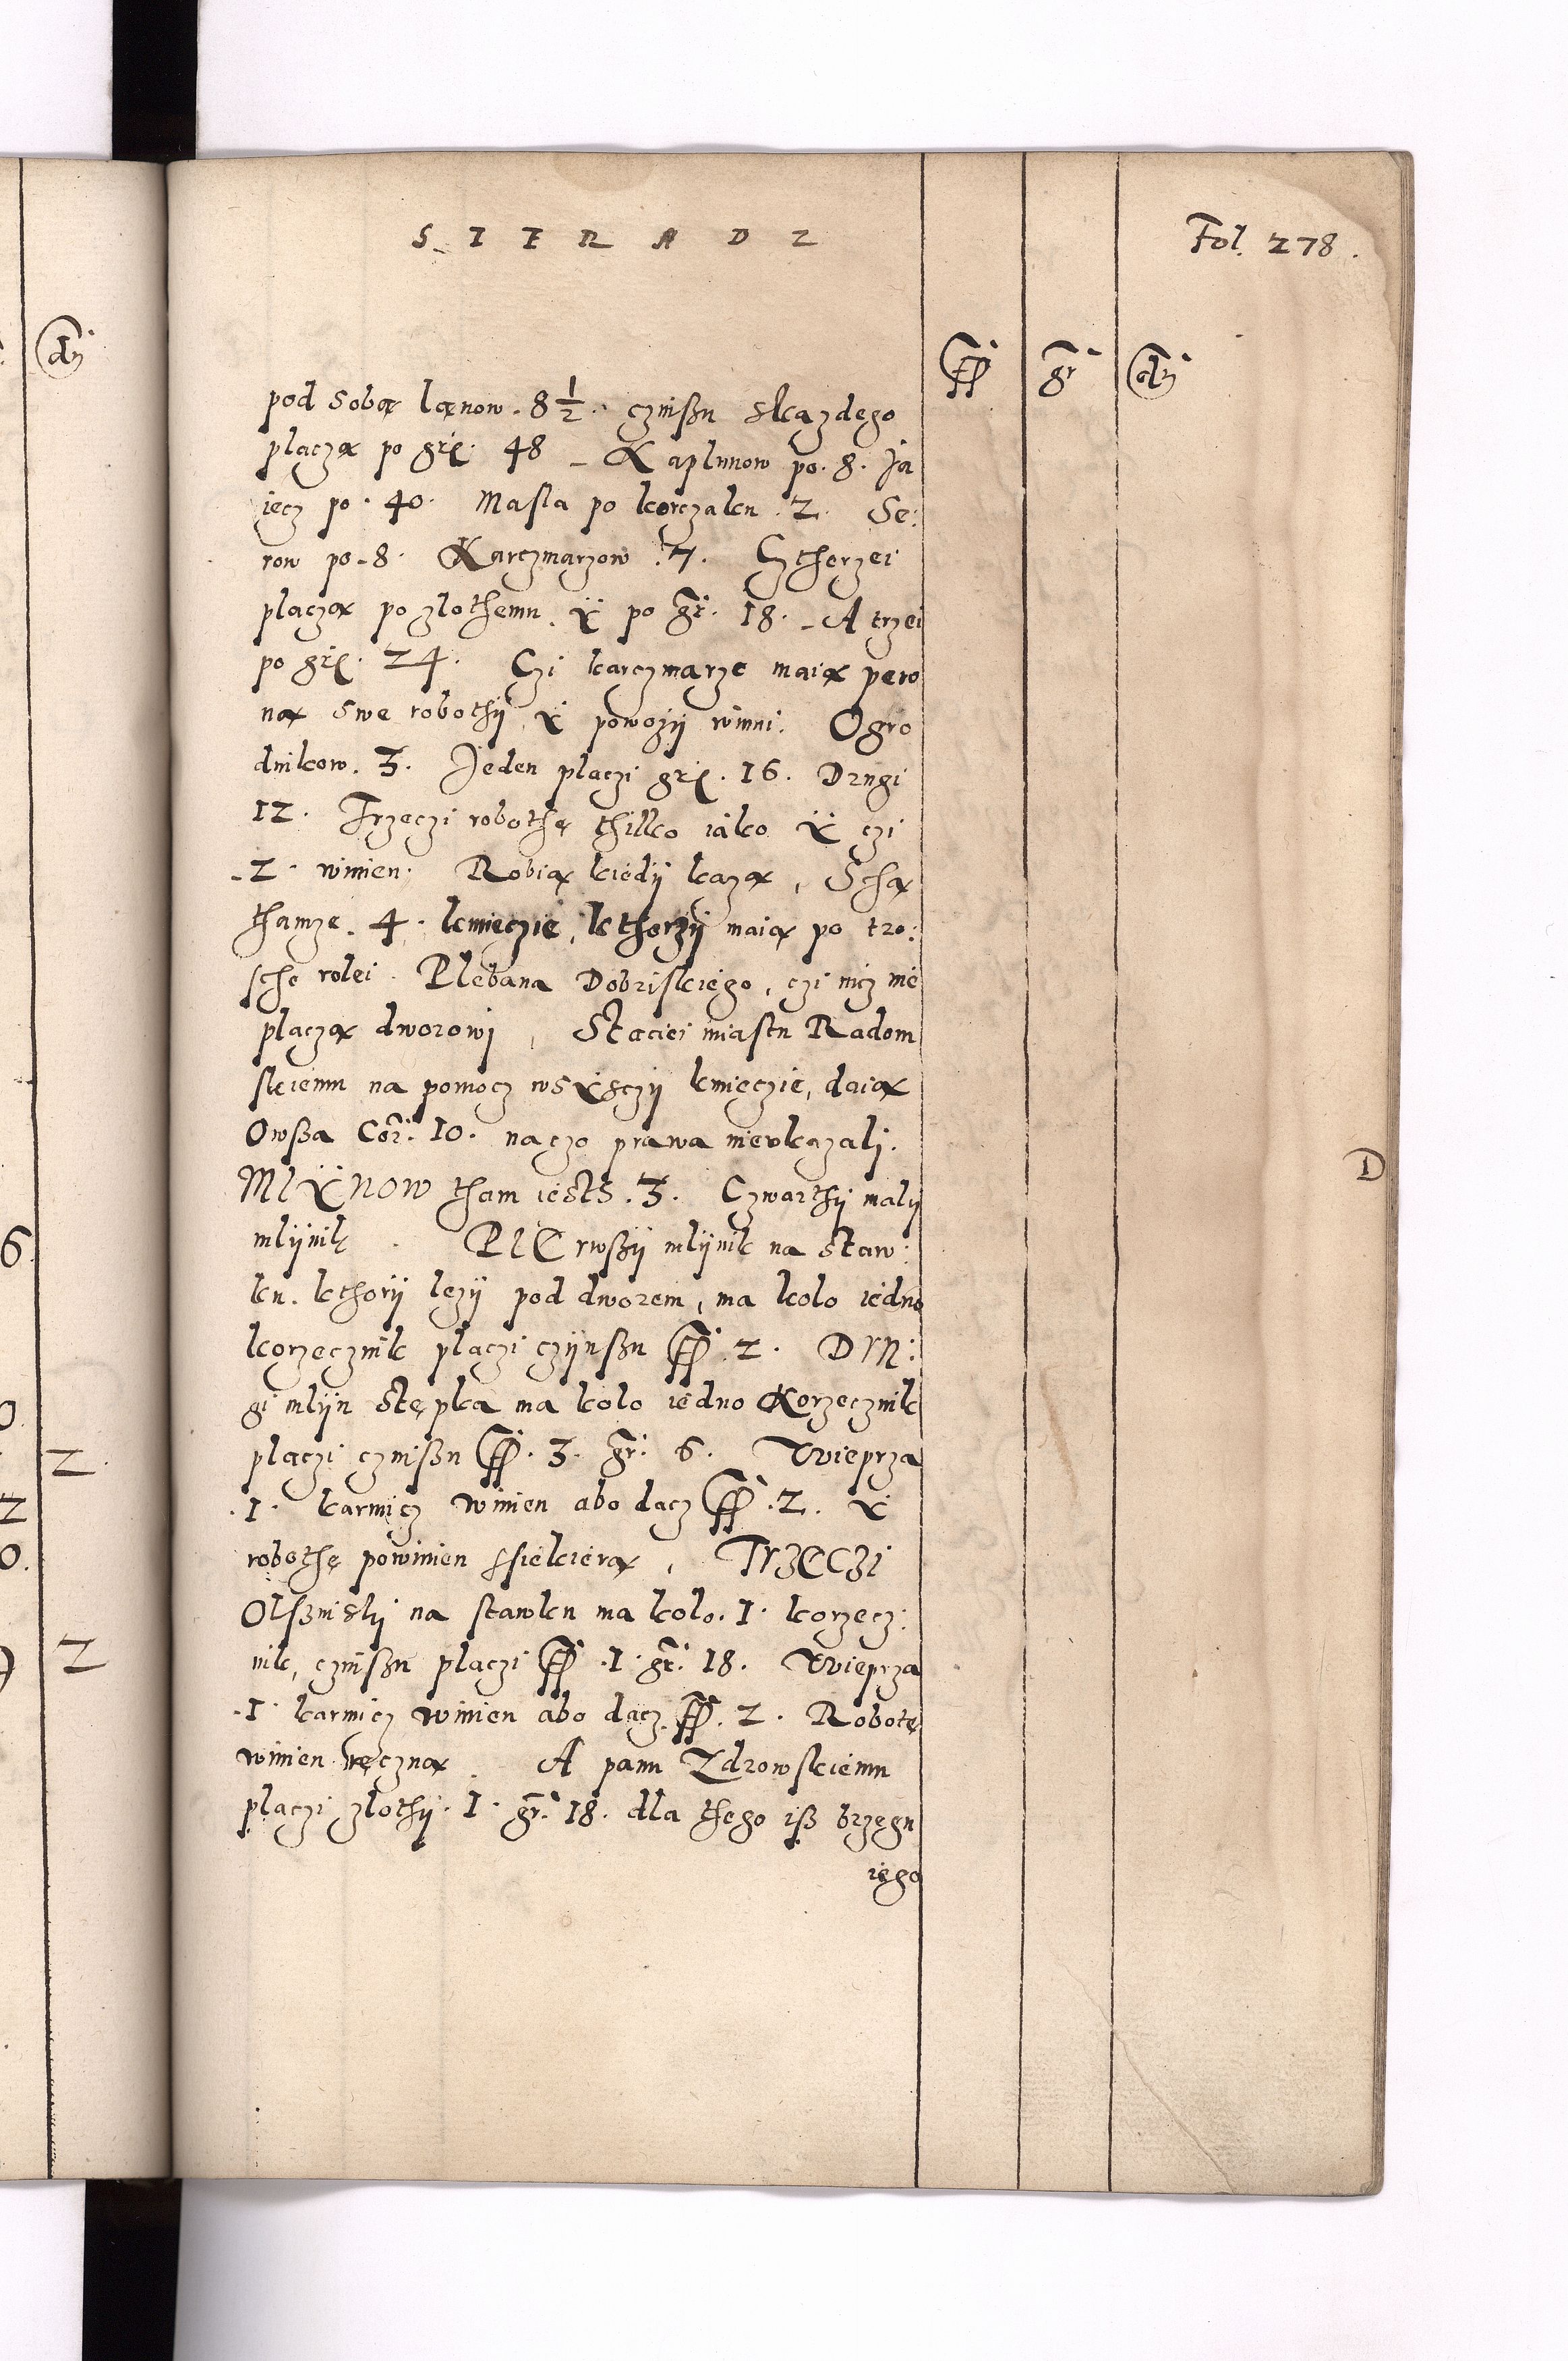 SIERADZ
Fol. 278.
ff gr dn
pod sobą lanow. 8 1/2. czinßu skazdego
placzą po grs. 48 _ Kaplunow po. 8. Ja
iecz po. 40. Masla po korczaku .2. Se:
row po. 8. Karczmarzow .7. Cztherzei
placzą po zlothemu. Y po gr. 18. _ A trzei
po grs. 24. Czi karczmarze maią pew
ną swe robothÿ Y powozÿ winni. Ogro
dnikow. 3. Jeden placzi grs. 16. Drugi
12. Trzeczi robothę thilko iako Y czi
2. winien. Robią kiedÿ kazą, Są
thamze. 4. kmieczie, kthorzÿ maią po tro:
sche rolei. Plebana Dobriskiego, czi nicz nie
placzą dworowi, Staciei miastu Radom
skiemu na pomocz wsYsczÿ kmieczie, daią
Owßa Cor. 10. naczo prawa nieukazali.
MlYNOW tham iests. 3. Czwarthÿ malÿ
mlÿnik. PIErwßÿ mlÿnik na staw:
ku. kthorÿ lezÿ pod dworem, ma kolo iedno
korzecznik placzi czÿnßu ff 2. DRU:
gi mlÿn Stępka ma kolo iedno Korzecznik
placzi czinßu ff. 3. gr. 6. Wieprza
.1. karmicz winien abo dacz ff .2. Y
robothę powinien ssiekierą, TRZECZI
Olßniskÿ na stawku ma kolo. 1. korzecz:
nik, czinßu placzi ff .1. gr. 18. Wieprza
.1. karmicz winien abo dacz ff. 2. Robotę
winien ręczną. A panu Zdrowskiemu
placzi zlothÿ. 1. gr. 18. dla thego iß brzegu
iego
D